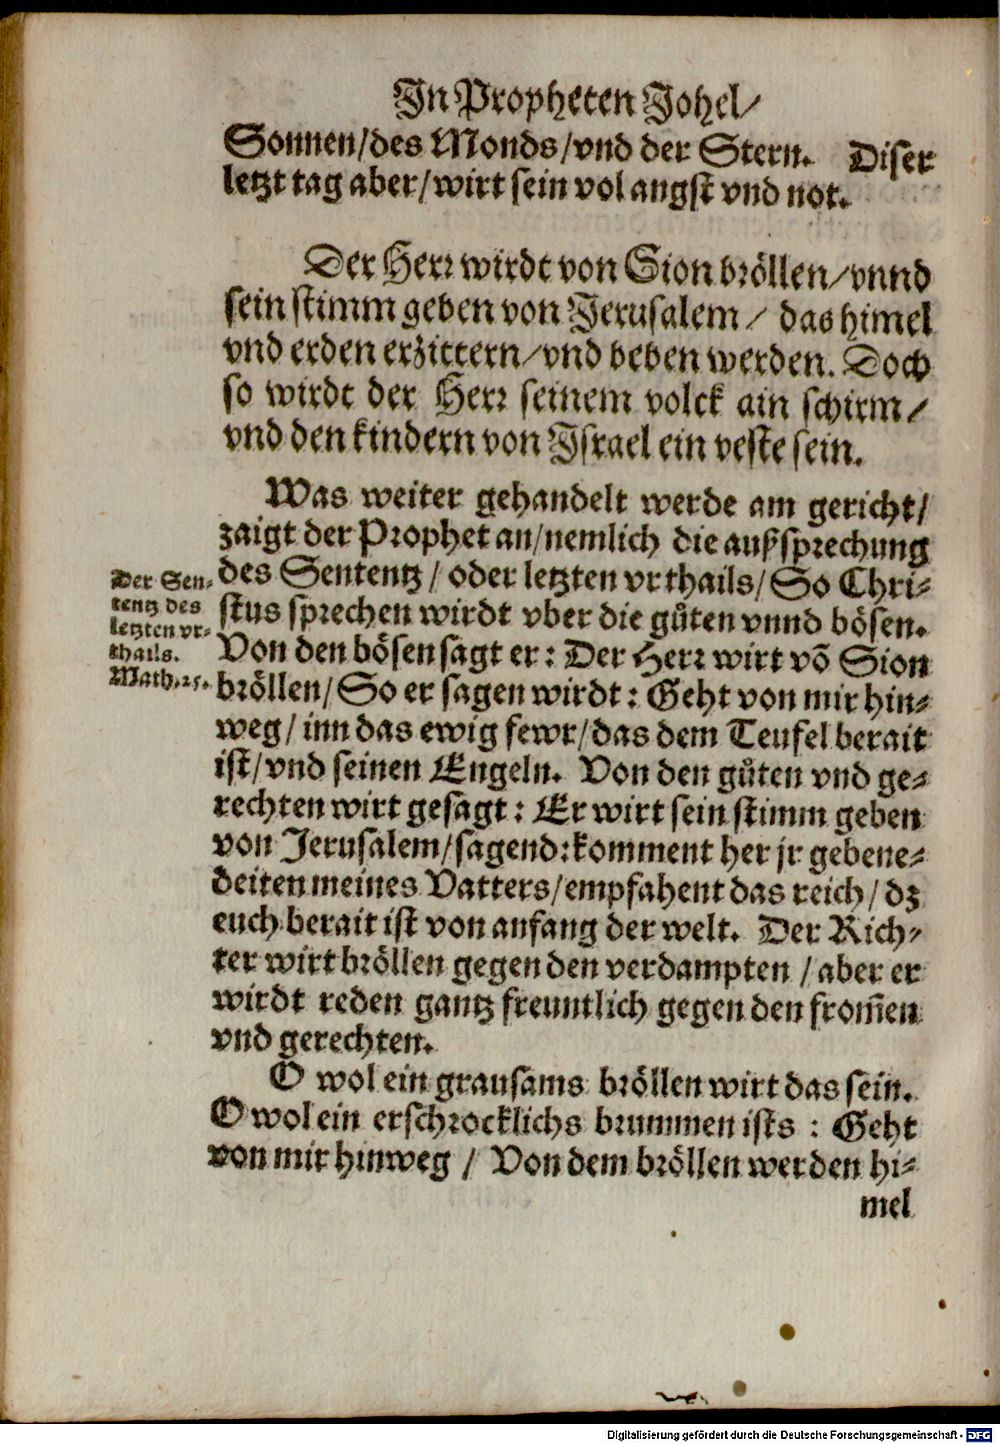 In Propheten Johel/
Sonnen/des Monds/vnd der Stern. Diser
letzt tag aber/wirt sein vol angst vnd not.
Der Herr wirdt von Sion bröllen/vnnd
sein stimm geben von Jerusalem/ das himel
vnd erden erzittern/vnd beben werden. Doch
so wirdt der Herr seinem volck ain schirm/
vnd den kindern von Israel ein veste sein.
Was weiter gehandelt werde am gericht/
zaigt der Prophet an/nemlich die außsprechung
des Sententz/ oder letzten vrthails/ So Chri-
stus sprechen wirdt vber die gůten vnnd bösen.
Von den bösen sagt er: Der Herr wirt võ Sion
bröllen/ So er sagen wirdt: Geht von mir hin-
weg/ inn das ewig fewr/das dem Teufel berait
ist/vnd seinen Engeln. Von den gůten vnd ge-
rechten wirt gesagt: Er wirt sein stimm geben
von Jerusalem/sagend:komment her jr gebene-
deiten meines Vatters/empfahent das reich/ dz
euch berait ist von anfang der welt. Der Rich-
ter wirt bröllen gegen den verdampten /aber er
wirdt reden gantz freuntlich gegen den from̃en
vnd gerechten.
O wol ein grausams bröllen wirt das sein.
O wol ein erschrocklichs brummen ists : Geht
von mir hinweg / Von dem bröllen werden hi-
mel
Der Sen-
tentz des
letzten vr-
thails.
Math.25.
Digitalisierung gefördert durch die Deutsche Forschungsgemeinschaft - DFG